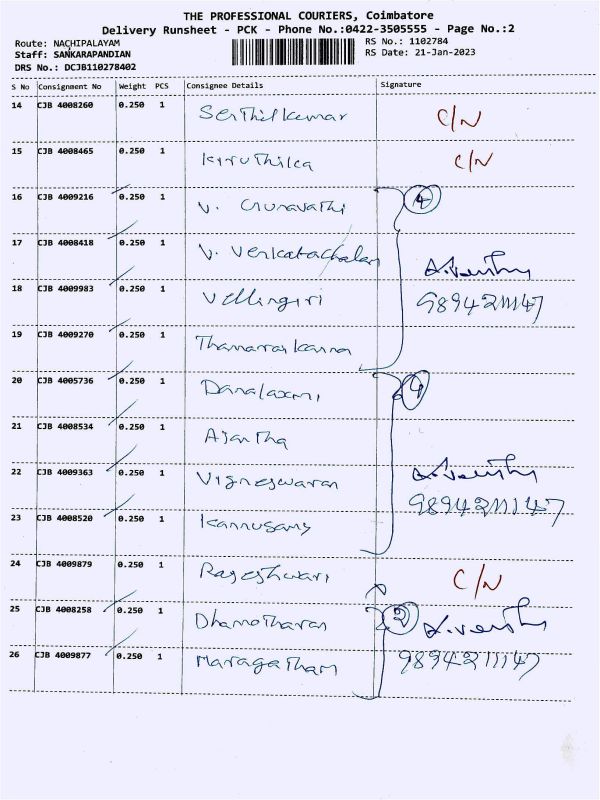 THE PROFESSIONAL COURIERS, Coimbatore
Delivery Runsheet - PCK - Phone No.:0422-3505555 - Page No.:2
Route: NACHIPALAYAM RS No.: 1102784
Staff: SANKARAPANDIAN RS Date: 21-Jan-2023
DRS No.: DCJB110278402
S No Consignment No Weight PCS Consignee Details Signature
14 CJB 4008260 0.250 1 Senthilkumar C/N
15 CJB 4008465 0.250 1 Kiruthika C/N
16 CJB 4009216 0.250 1 V. Gunavathi 4
17 CJB 4008418 0.250 1 V. Venkatachalam
18 CJB 4009983 0.250 1 Vellingiri 9894211147
19 CJB 4009270 0.250 1 Thamaraikannan
20 CJB 4005736 0.250 1 Danalaxmi 4
21 CJB 4008534 0.250 1 Ajantha
22 CJB 4009363 0.250 1 Vigneswaran 9894211147
23 CJB 4008520 0.250 1 Kannusamy
24 CJB 4009879 0.250 1 Rajeshwari C/N
25 CJB 4008258 0.250 1 Dhamotharan 2
26 CJB 4009877 0.250 1 Maragatham 9894211147